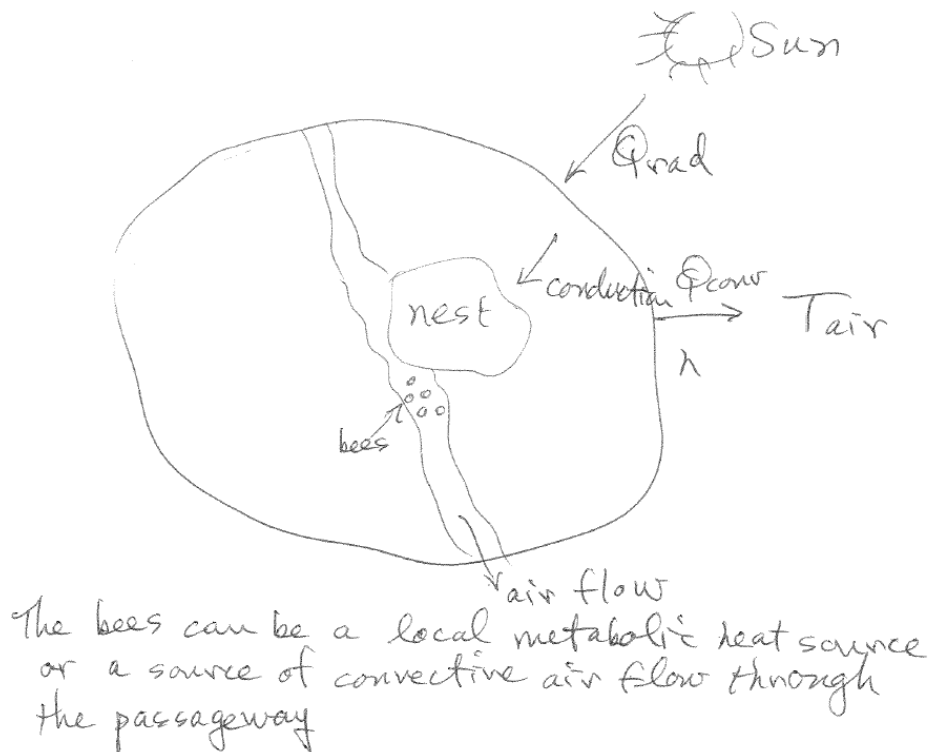 Sun
Qrad
conduction
Qconv
Tair
h
nest
bees
air flow
The bees can be a local metabolic heat source
or a source of convective air flow through
the passageway